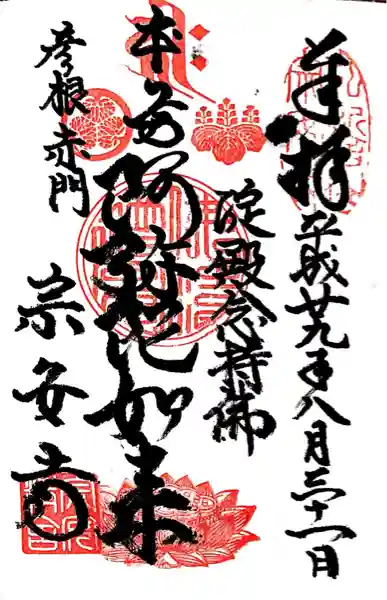 奉拝 平成廿九年八月三十一日
淀殿念持佛
本尊 阿弥陀如来
彦根赤門
宗安寺